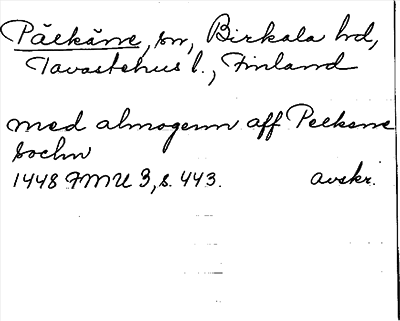 Pälkäne, sn, Birkala hd,
Tavastehus l., Finland
med almogenn aff Pelkene
sochn
1448 FMU 3, s. 443. avskr.